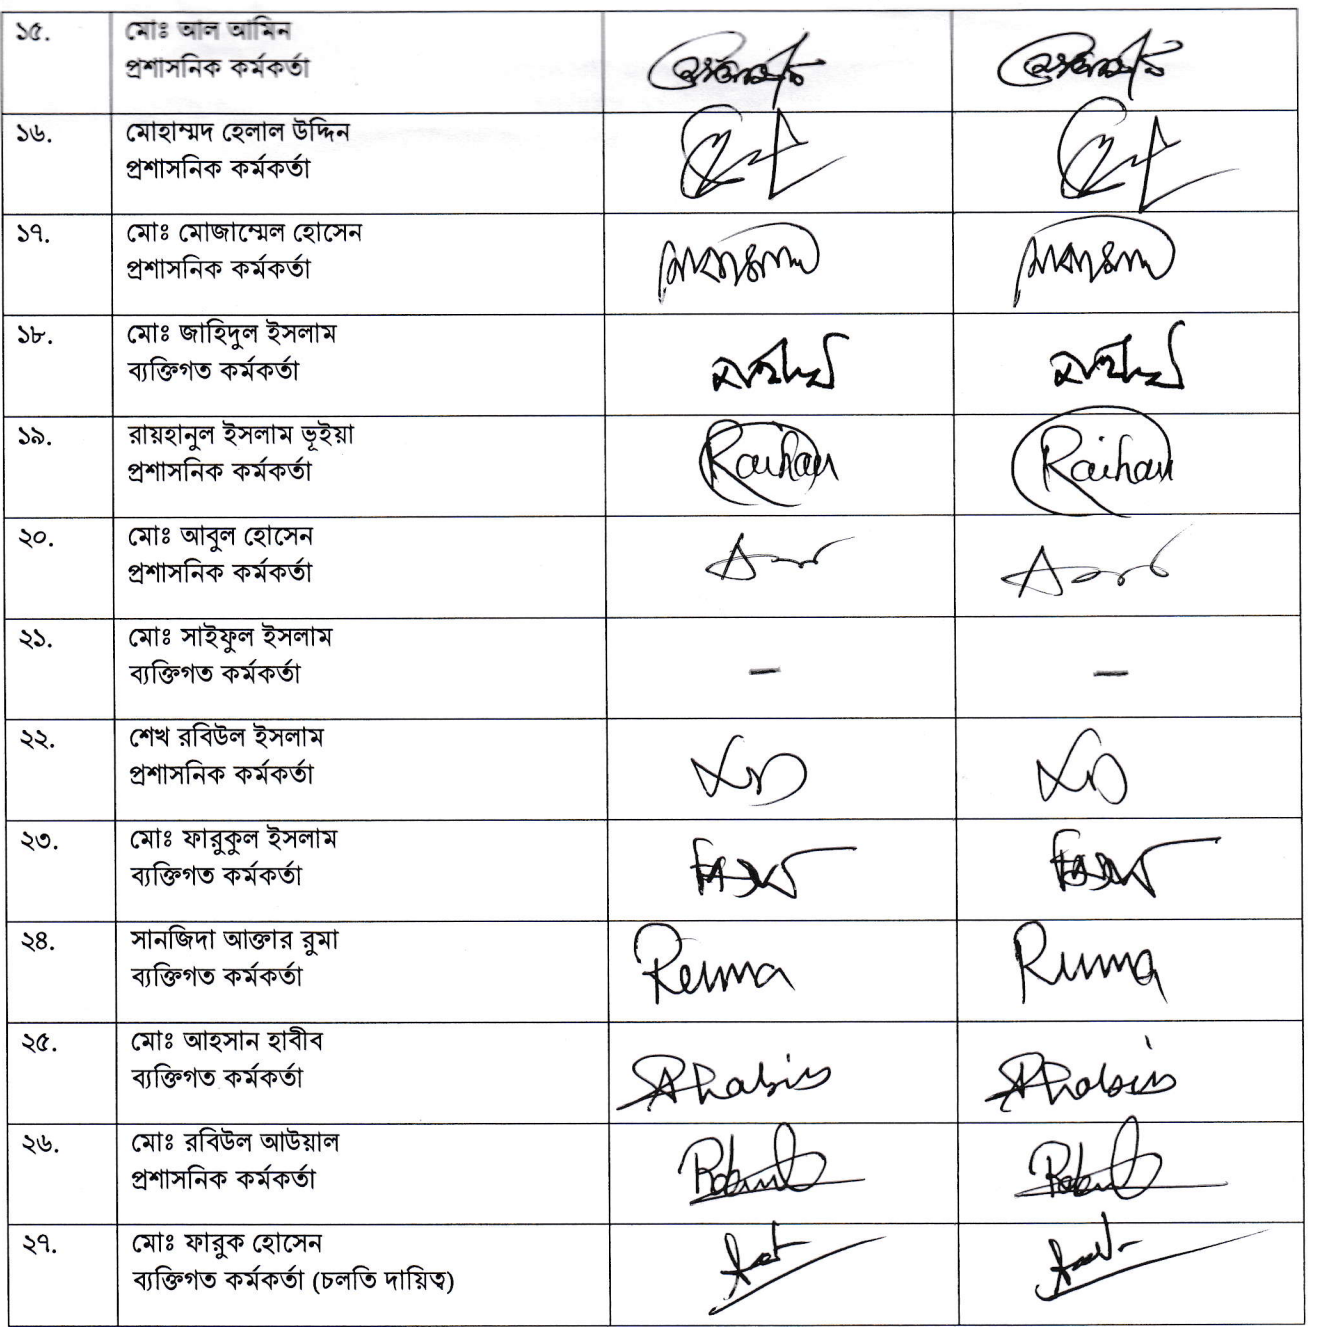 ১৫.
মোঃ আল আমিন
প্রশাসনিক কর্মকর্তা
১৬.
মোহাম্মদ হেলাল উদ্দিন
প্রশাসনিক কর্মকর্তা
১৭.
মোঃ মোজাম্মেল হোসেন
প্রশাসনিক কর্মকর্তা
১৮.
মোঃ জাহিদুল ইসলাম
ব্যক্তিগত কর্মকর্তা
১৯.
রায়হানুল ইসলাম ভূইয়া
প্রশাসনিক কর্মকর্তা
Raihan Raihan
২০.
মোঃ আবুল হোসেন
প্রশাসনিক কর্মকর্তা
২১.
মোঃ সাইফুল ইসলাম
ব্যক্তিগত কর্মকর্তা
– –
২২.
শেখ রবিউল ইসলাম
প্রশাসনিক কর্মকর্তা
২৩.
মোঃ ফারুকুল ইসলাম
ব্যক্তিগত কর্মকর্তা
২৪.
সানজিদা আক্তার রুমা
ব্যক্তিগত কর্মকর্তা
Ruma Ruma
২৫.
মোঃ আহসান হাবীব
ব্যক্তিগত কর্মকর্তা
২৬.
মোঃ রবিউল আউয়াল
প্রশাসনিক কর্মকর্তা
২৭.
মোঃ ফারুক হোসেন
ব্যক্তিগত কর্মকর্তা (চলতি দায়িত্ব)